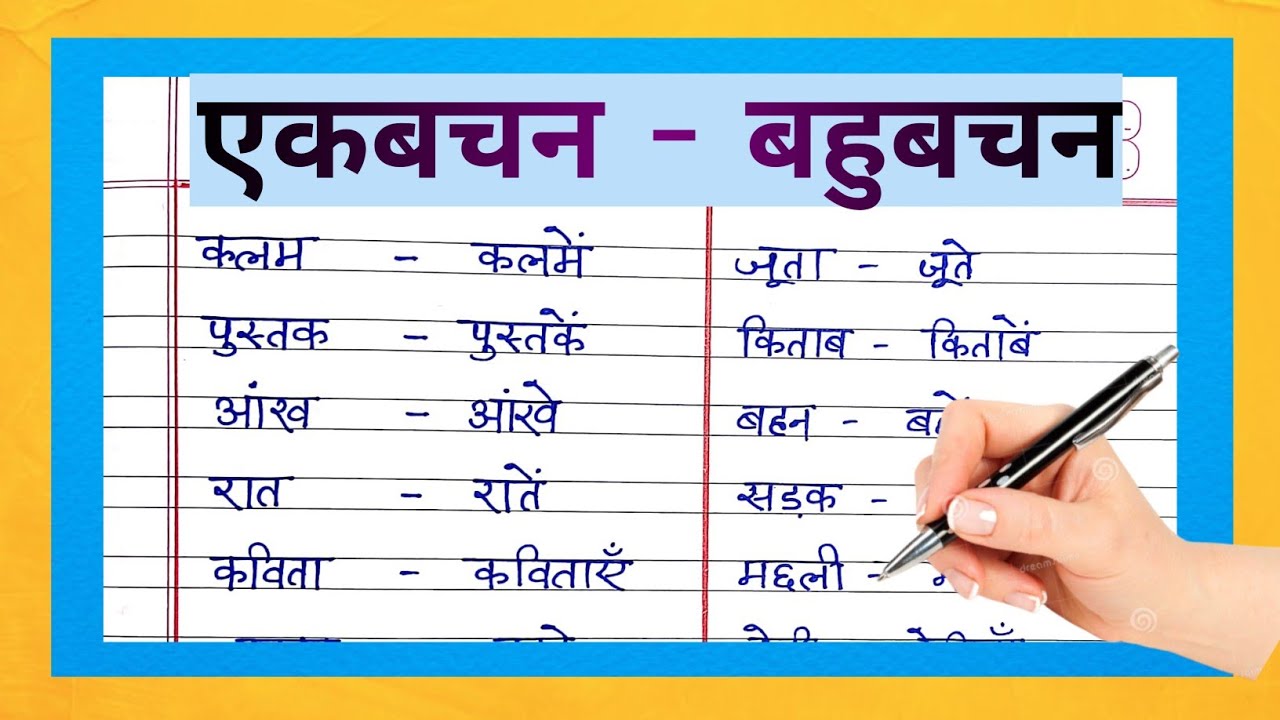 एकबचन - बहुबचन
कलम - कलमें
पुस्तक - पुस्तकें
आंख - आंखे
रात - रातें
कविता - कविताएँ
जूता - जूते
किताब - किताबें
बहन -
सड़क -
मछली -